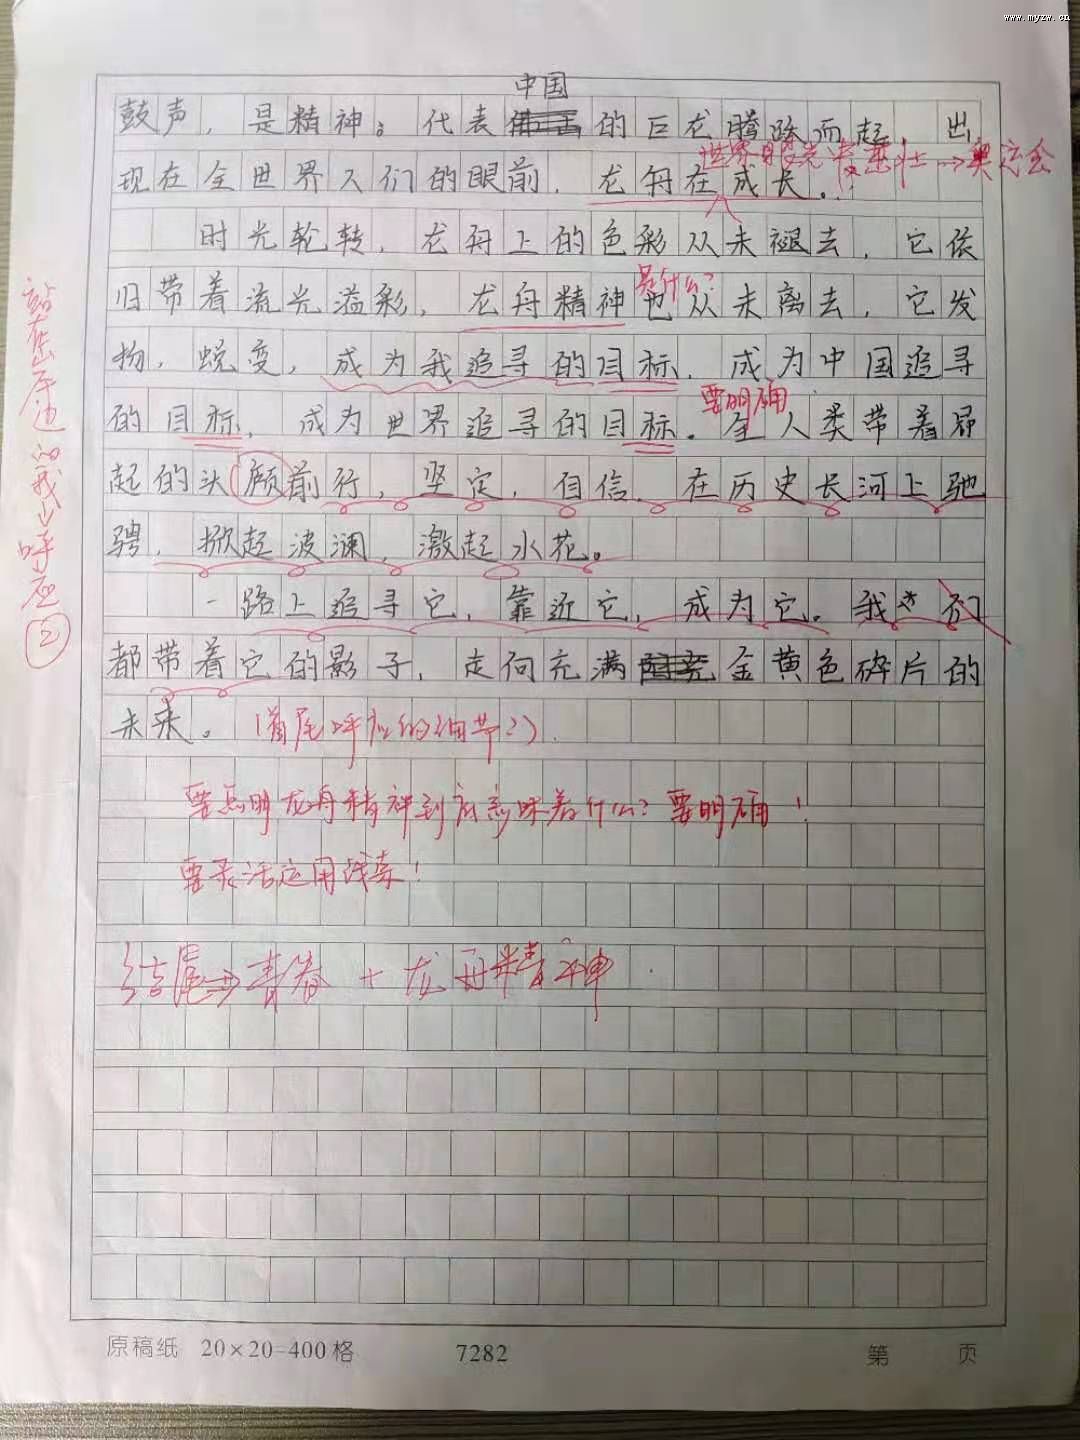 www.myzw.cn
中国
鼓声，是精神。代表的巨龙腾跃而起，出
世界眼光 奥运会
现在全世界人们的眼前，龙舟在成长。
时光轮转，龙舟上的色彩从未褪去，它依
是什么？
旧带着流光溢彩，龙舟精神也从未离去，它发
扬，蜕变，成为我追寻的目标，成为中国追寻
要明确
的目标，成为世界追寻的目标。全人类带着昂
起的头颅前行，坚定，自信，在历史长河上驰
骋，掀起波澜，激起水花。
一路上追寻它，靠近它，成为它。我们
都带着它的影子，走向充满金黄色碎片的
未来。（首尾呼应的细节？）
站在岸边的我 呼应 2
要点明龙舟精神到底意味着什么？要明确！
要灵活运用线索！
结尾⇒青春＋龙舟精神
原稿纸 20×20=400格 7282 第 页